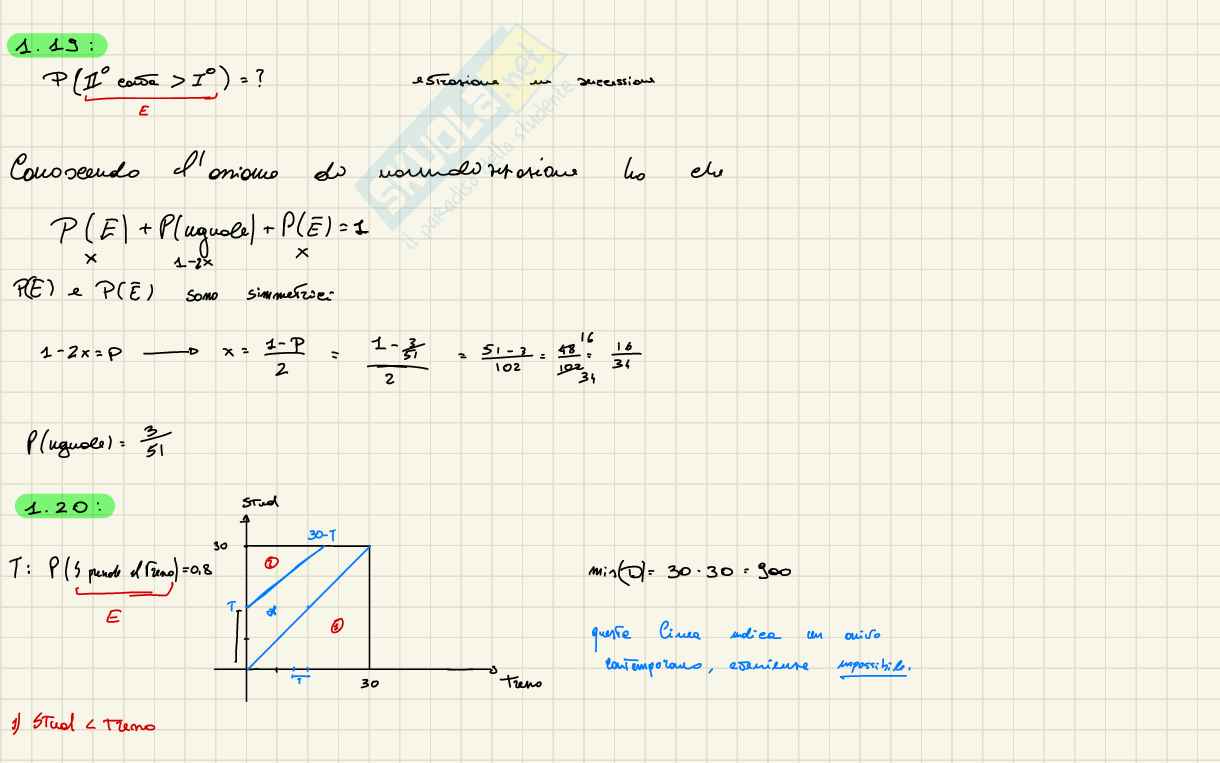 1.19:
P(II° carta > I°) = ? estrazione in successione
E
Conoscendo l'assioma di normalizzazione ho che
P(E) + P(uguale) + P(Ē) = 1
x 1-2x x
P(E) e P(Ē) sono simmetrici
1-2x = P → x = 1-P/2 = 1-3/51/2 = 51-3/102 = 48/102 16/34 = 16/34
P(uguale) = 3/51
1.20:
Stud
30 30-T
T: P(S prende il treno) = 0,8 mis(D) = 30·30 = 900
E
T
2
1
questa linea indica un arrivo
contemporaneo, evenienza impossibile.
T 30 Treno
1) Stud < Treno
SKUOLA.net
il paradiso dello studente